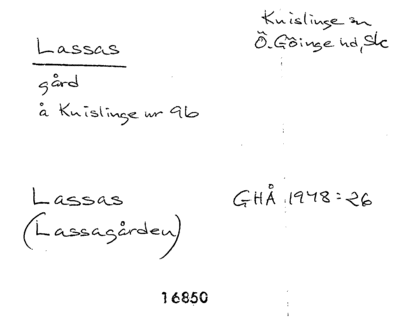 Knislinge sn
Ö. Göinge hd, Sk
Lassas
gård
å Knislinge nr 9b
Lassas
GHÅ 1948:26
(Lassagården)
16850